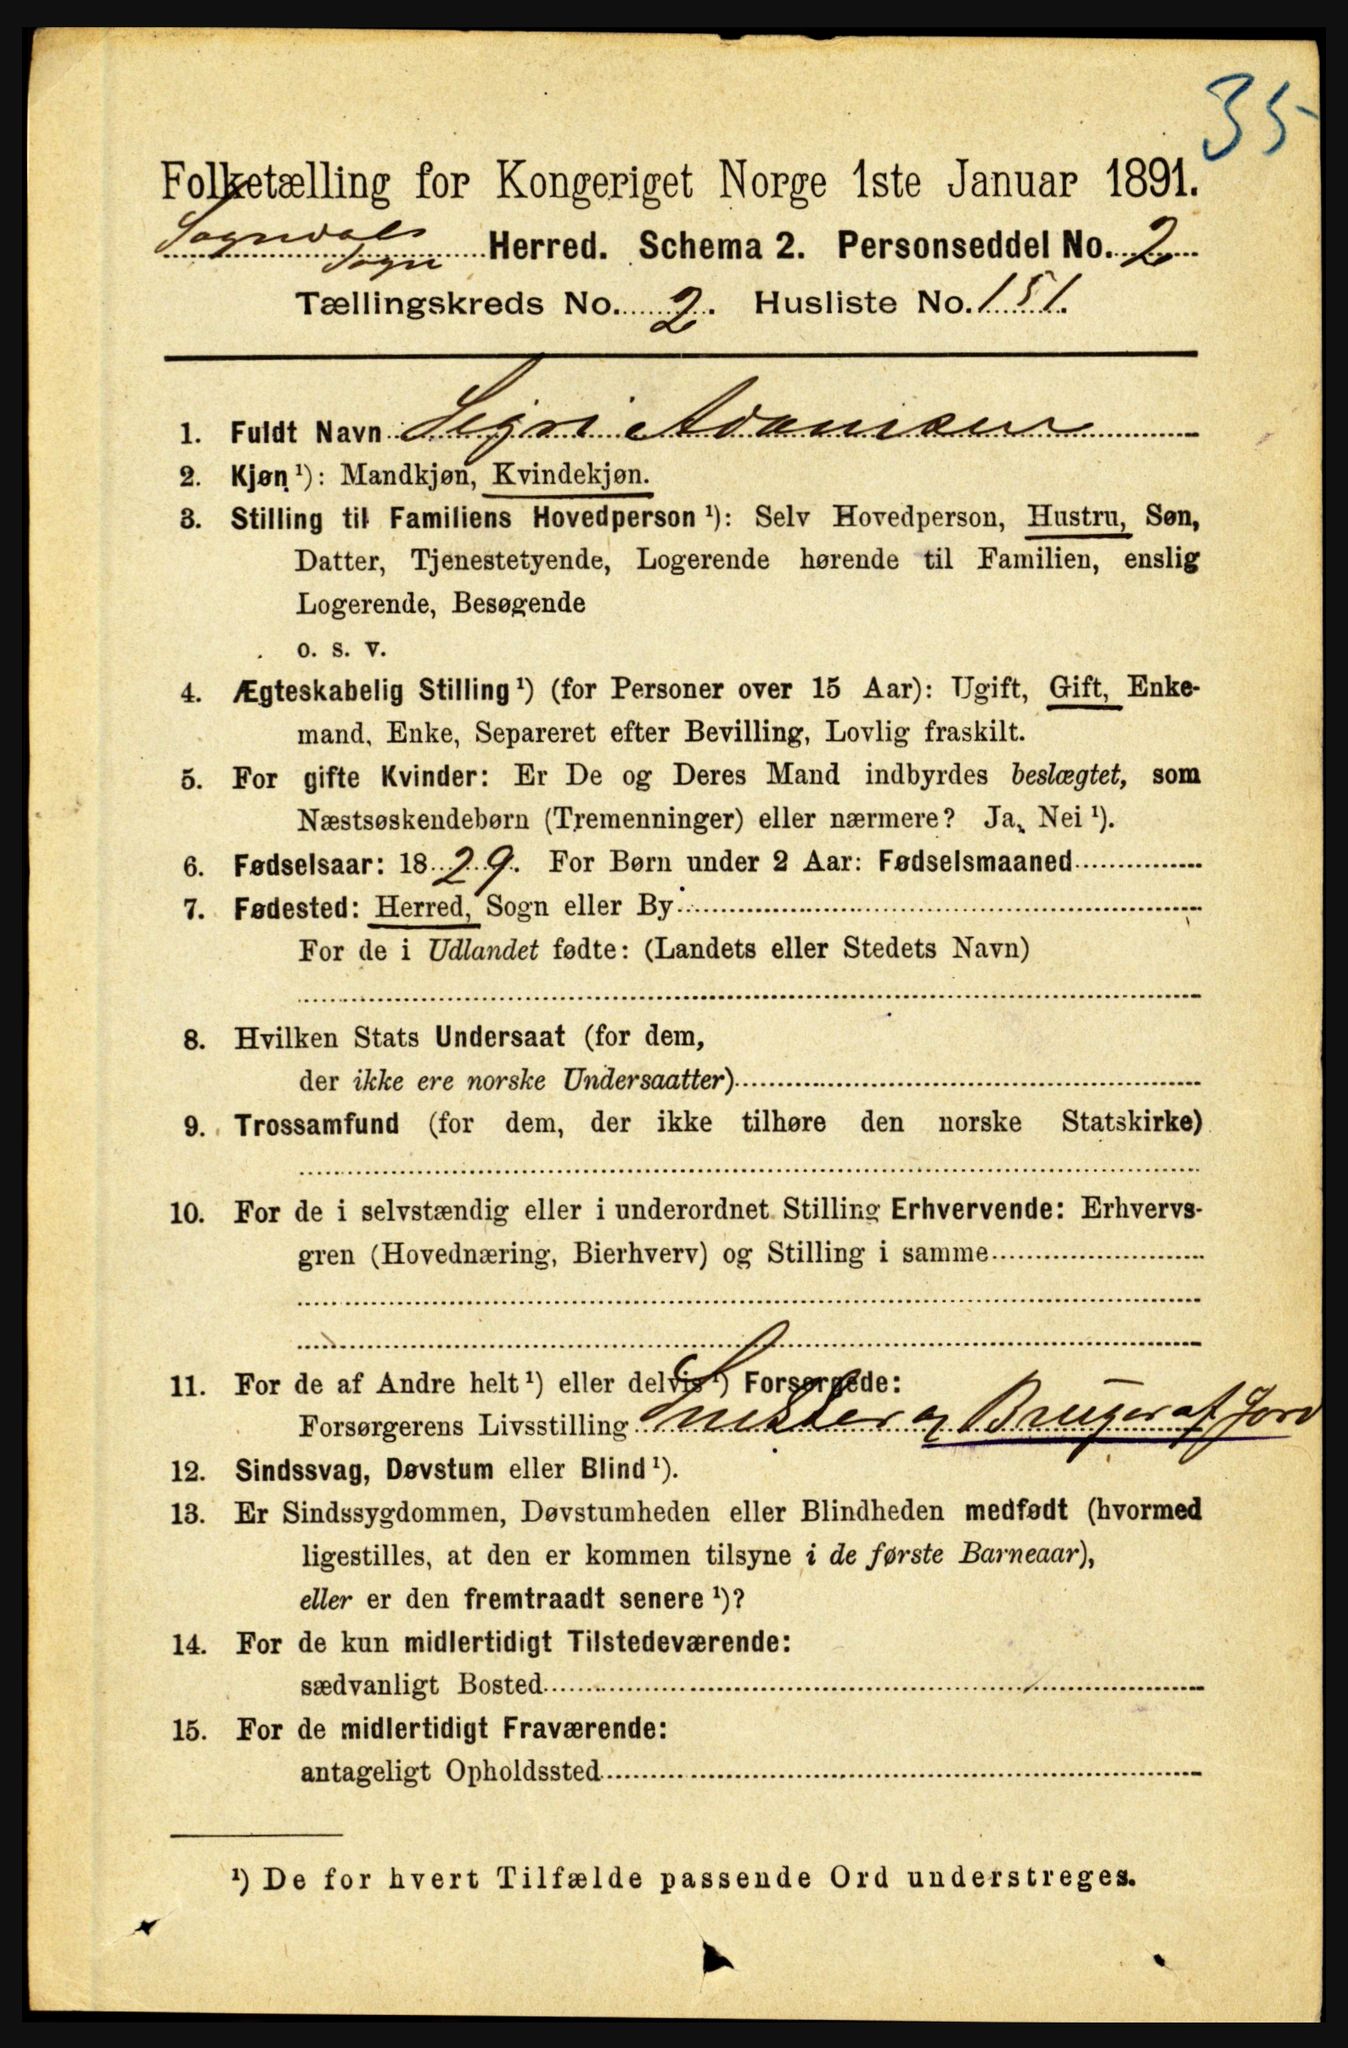 35
Folketælling for Kongeriget Norge 1ste Januar 1891.
Sogndals Sogn Herred. Schema 2. Personseddel No. 2
Tællingskreds No. 2. Husliste No. 151.
1. Fuldt Navn Sigri Adamsen
2. Kjøn ¹): Mandkjøn, Kvindekjøn.
3. Stilling til Familiens Hovedperson ¹): Selv Hovedperson, Hustru, Søn,
Datter, Tjenestetyende, Logerende hørende til Familien, enslig
Logerende, Besøgende
o. s. v.
4. Ægteskabelig Stilling ¹) (for Personer over 15 Aar): Ugift, Gift, Enke-
mand, Enke, Separeret efter Bevilling, Lovlig fraskilt.
5. For gifte Kvinder: Er De og Deres Mand indbyrdes beslægtet, som
Næstsøskendebørn (Tremenninger) eller nærmere? Ja, Nei ¹).
6. Fødselsaar: 1829. For Børn under 2 Aar: Fødselsmaaned
7. Fødested: Herred, Sogn eller By
For de i Udlandet fødte: (Landets eller Stedets Navn)
8. Hvilken Stats Undersaat (for dem,
der ikke ere norske Undersaatter)
9. Trossamfund (for dem, der ikke tilhøre den norske Statskirke)
10. For de i selvstændig eller i underordnet Stilling Erhvervende: Erhvervs-
gren (Hovednæring, Bierhverv) og Stilling i samme
11. For de af Andre helt ¹) eller delvis ¹) Forsørgede:
Forsørgerens Livsstilling Snekker og Bruger af Jord
12. Sindssvag, Døvstum eller Blind ¹).
13. Er Sindssygdommen, Døvstumheden eller Blindheden medfødt (hvormed
ligestilles, at den er kommen tilsyne i de første Barneaar),
eller er den fremtraadt senere ¹)?
14. For de kun midlertidigt Tilstedeværende:
sædvanligt Bosted
15. For de midlertidigt Fraværende:
antageligt Opholdssted
¹) De for hvert Tilfælde passende Ord understreges.